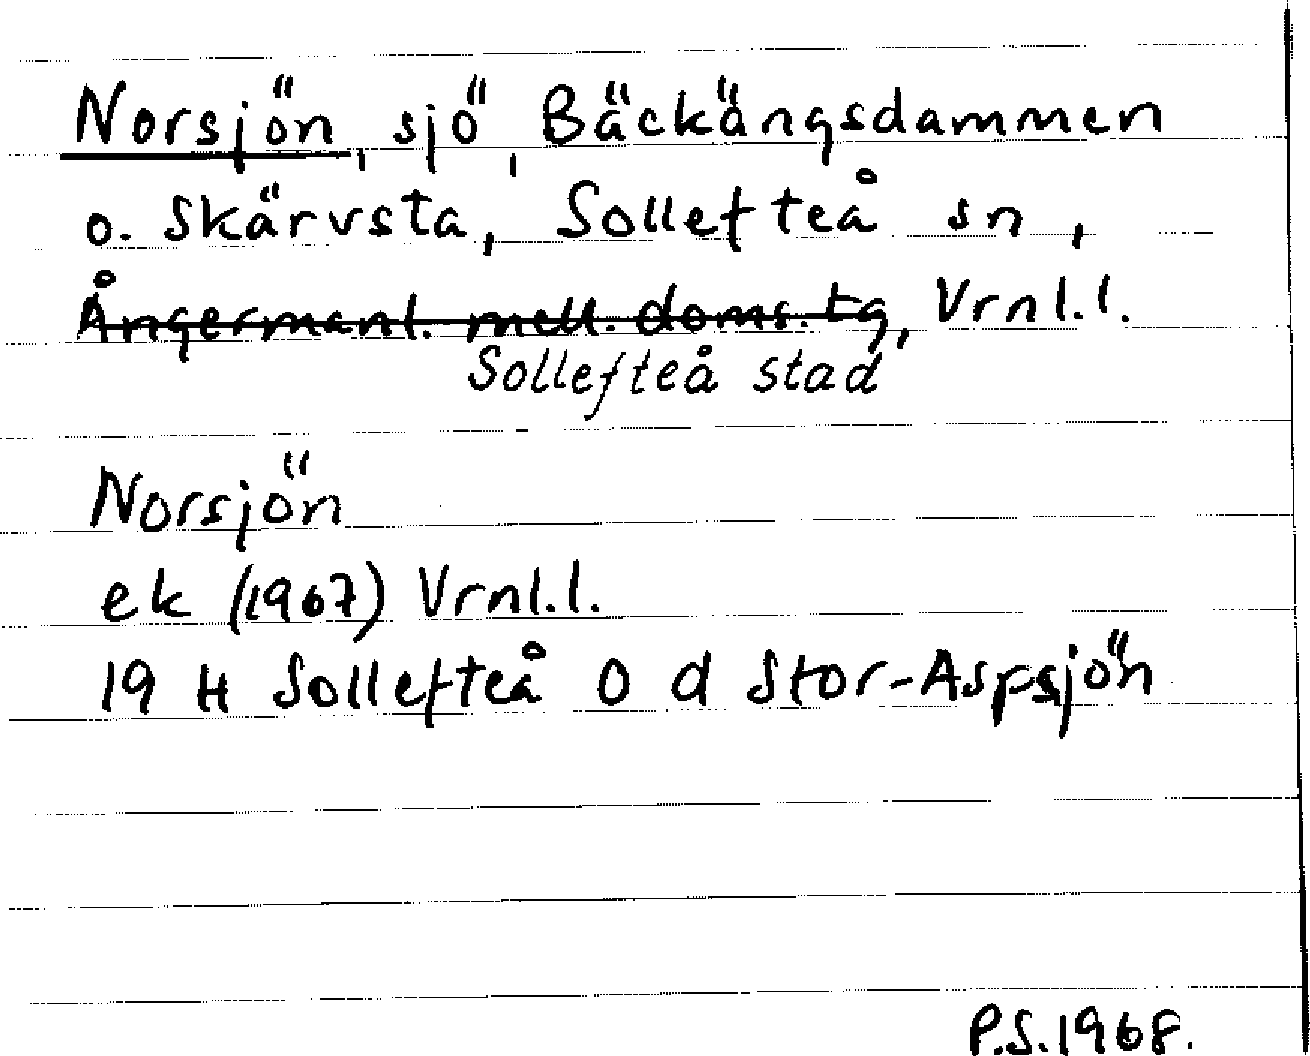 Norsjön, sjö, Bäckängsdammen
o. Skärvsta, Sollefteå sn,
Ångermanl. mell. doms. tg, Vrnl.l.
Sollefteå stad
Norsjön
ek (1967) Vrnl.l.
19 H Sollefteå O d Stor-Aspsjön
P.S.1968.